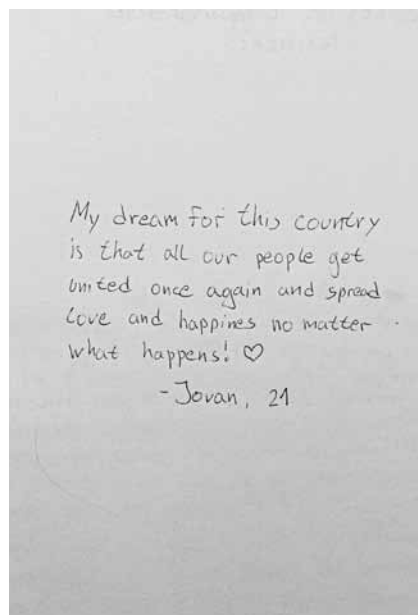 My dream for this country
is that all our people get
united once again and spread
love and happines no matter
what happens! ♡
- Jovan, 21